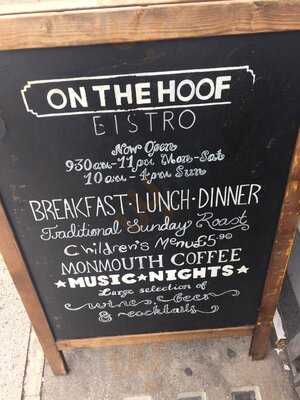 ON THE HOOF
BISTRO
Now Open
930am-11pm Mon-Sat
10am-4pm Sun
BREAKFAST·LUNCH·DINNER
Traditional Sunday Roast
Children's Menu £5.90
MONMOUTH COFFEE
★MUSIC★NIGHTS★
Large selection of
wine, beer
& cocktails